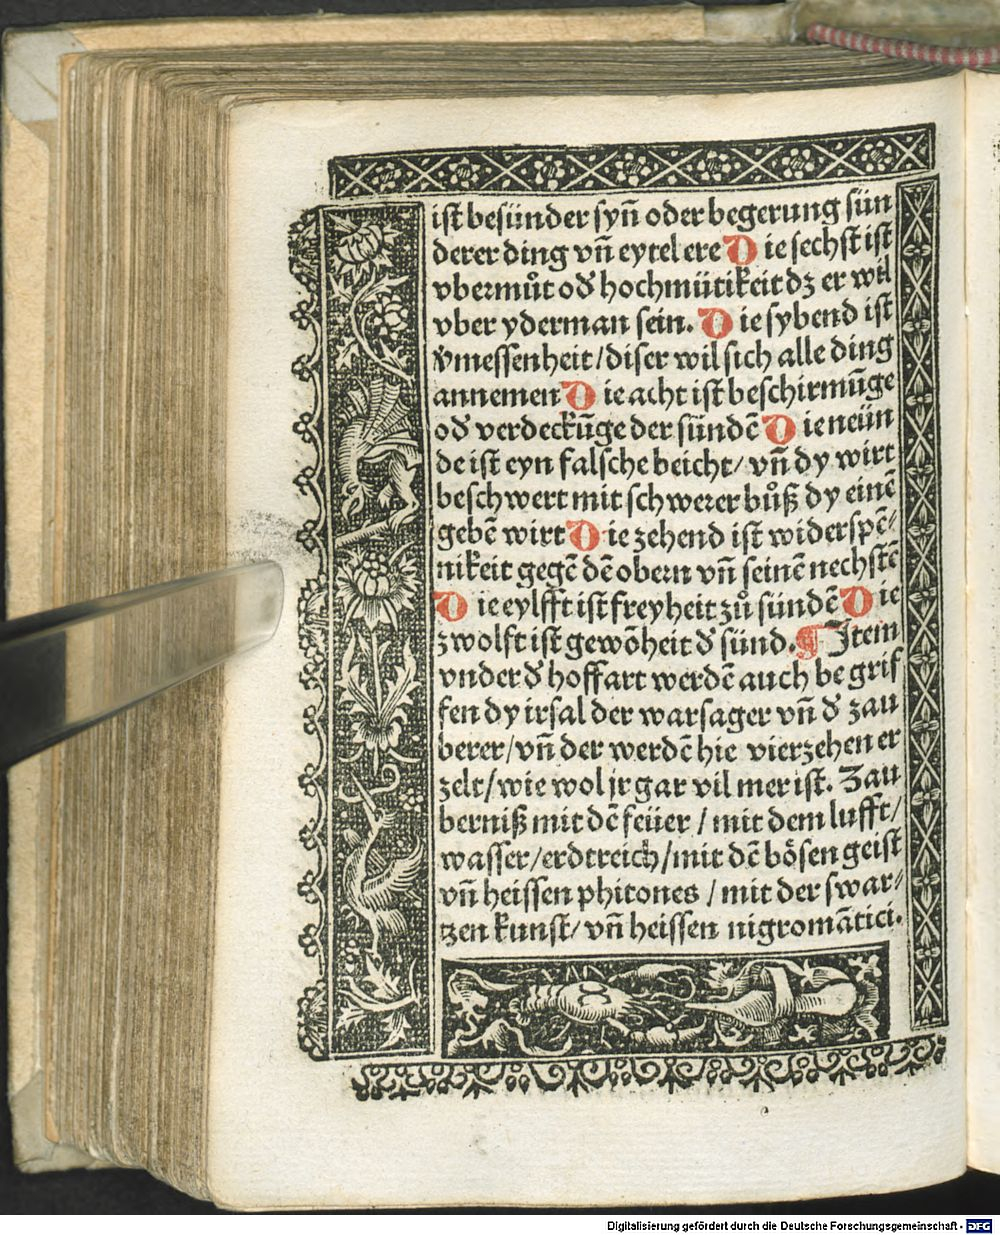 ist besünder syn̄ oder begerung sün
derer ding vn̄ eytel ere Die sechst ist
vbermůt od̕ hochmütikeit dz er wil
vber yderman sein. Die sybend ist
v̕messenheit/diser wil sich alle ding
annemen Die acht ist beschirmūge
od̕ verdeckūge der sündē Die neün
de ist eyn falsche beicht/ vn̄ dy wirt
beschwert mit schwerer bůß dy einē
gebē wirt Die zehend ist widerspē⸗
nikeit gegē dē obern vn̄ seinē nechstē
Die eylfft ist freyheit zů sündē Die
zwolft ist gewōheit d̕ sünd. ¶ Item
vnder d̕ hoffart werdē auch begrif
fen dy irsal der warsager vn̄ d̕ zau
berer/vn̄ der werdē hie vierzehen er
zelt/wie wol jr gar vil mer ist. Zau
berniß mit dē feüer / mit dem lufft/
wasser/erdtreich/mit dē bösen geist
vn̄ heissen phitones / mit der swar⸗
tzen kunst/ vn̄ heissen nigromātici.
Digitalisierung gefördert durch die Deutsche Forschungsgemeinschaft - DFG